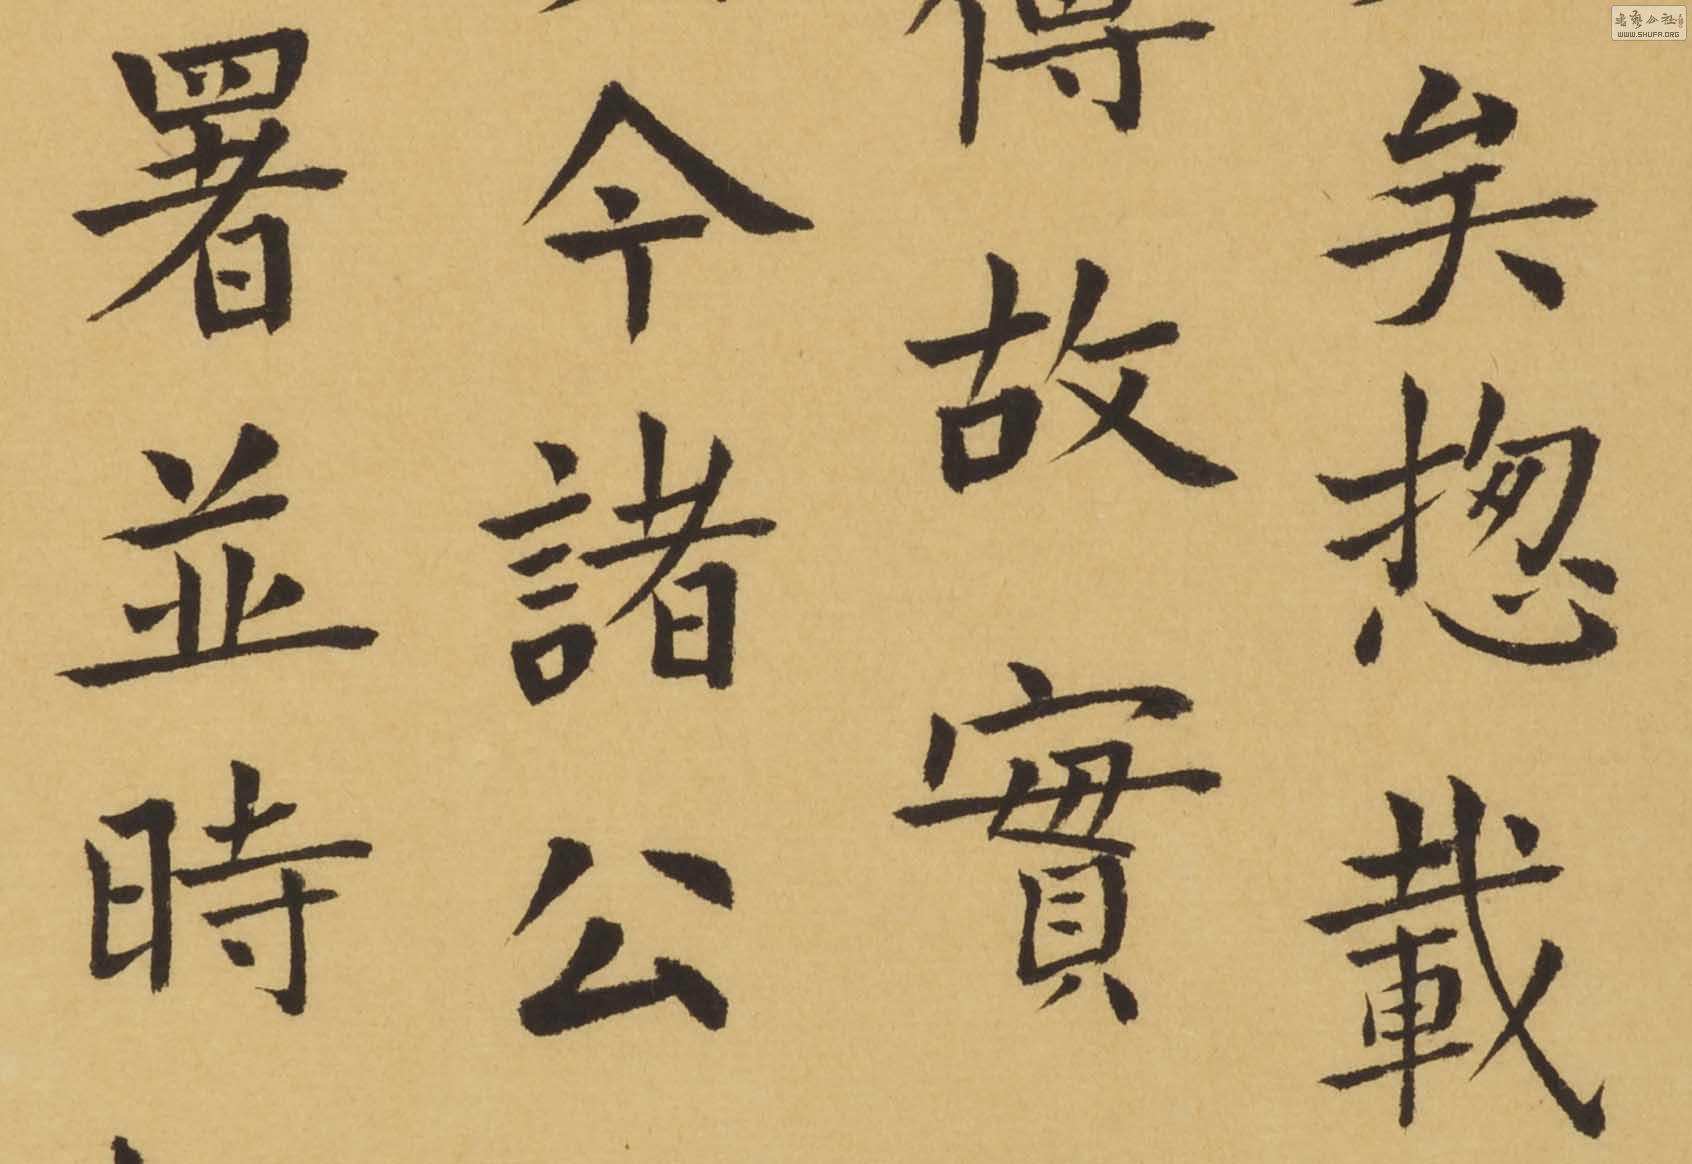 矣揔載
得故實
今諸公
署並時
書藝公社
WWW.SHUFA.ORG